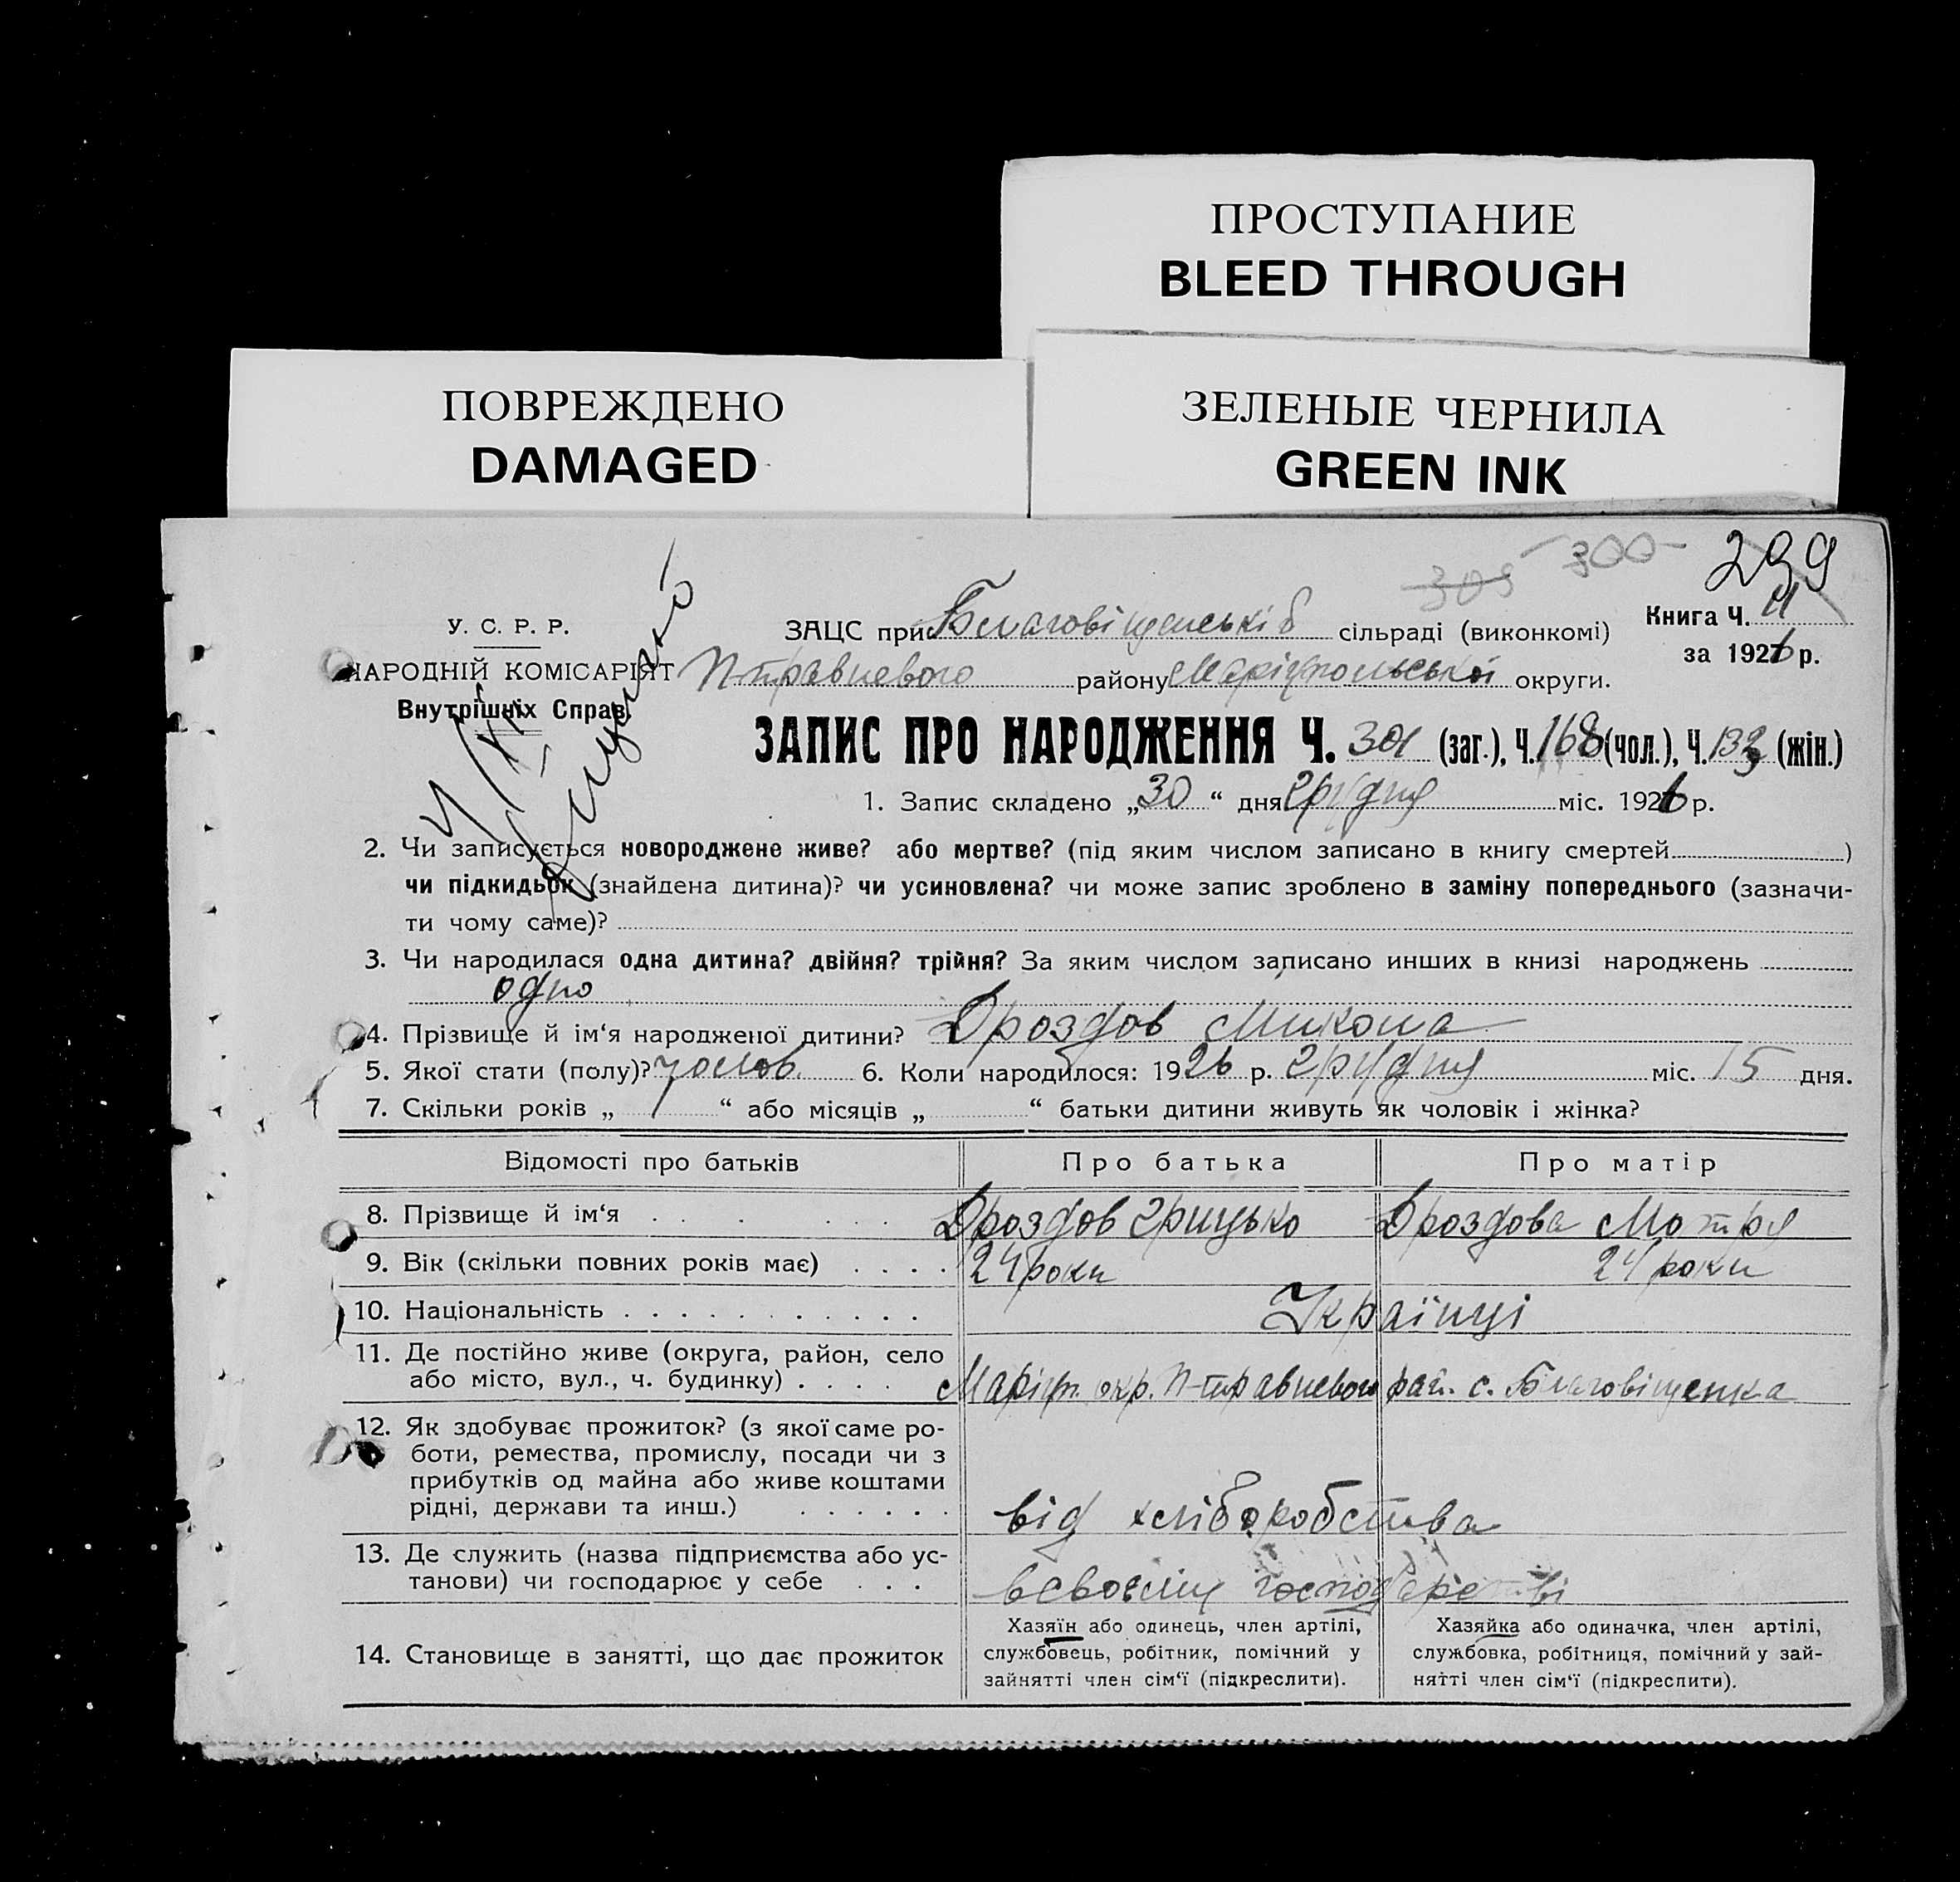 ПРОСТУПАНИЕ
BLEED THROUGH
ПОВРЕЖДЕНО
DAMAGED
ЗЕЛЕНЫЕ ЧЕРНИЛА
GREEN INK
309 300 299
У. С. Р. Р.
НАРОДНІЙ КОМІСАРІЯТ
Внутрішніх Справ.
ЗАЦС при Благовіщенській сільраді (виконкомі)
Книга Ч. II
за 1926 р.
П-травневого району Маріупольської округи.
ЗАПИС ПРО НАРОДЖЕННЯ Ч. 301 (заг.), Ч. 168 (чол.), Ч. 133 (жін.)
1. Запис складено „30“ дня грудня міс. 1926 р.
2. Чи записується новороджене живе? або мертве? (під яким числом записано в книгу смертей )
чи підкидьок (знайдена дитина)? чи усиновлена? чи може запис зроблено в заміну попереднього (зазначи-
ти чому саме)?
3. Чи народилася одна дитина? двійня? трійня? За яким числом записано инших в книзі народжень
одно
4. Прізвище й ім‘я народженої дитини? Дроздов Микола
5. Якої стати (полу)? чолов. 6. Коли народилося: 1926 р. грудня міс. 15 дня.
7. Скільки років „ “ або місяців „ “ батьки дитини живуть як чоловік і жінка?
Відомості про батьків Про батька Про матір
8. Прізвище й ім‘я Дроздов Грицько Дроздова Мотря
9. Вік (скільки повних років має) 24 роки 24 роки
10. Національність Українці
11. Де постійно живе (округа, район, село
або місто, вул., ч. будинку) Маріуп. окр. П-травневого рай. с. Благовіщенка
12. Як здобуває прожиток? (з якої саме ро-
боти, ремества, промислу, посади чи з
прибутків од майна або живе коштами
рідні, держави та инш.) від хліборобства
13. Де служить (назва підприємства або ус-
танови) чи господарює у себе в своєму господарстві
14. Становище в занятті, що дає прожиток
Хазяїн або одинець, член артілі,
службовець, робітник, помічний у
зайнятті член сім‘ї (підкреслити).
Хазяйка або одиначка, член артілі,
службовка, робітниця, помічний у зай-
нятті член сім‘ї (підкреслити).